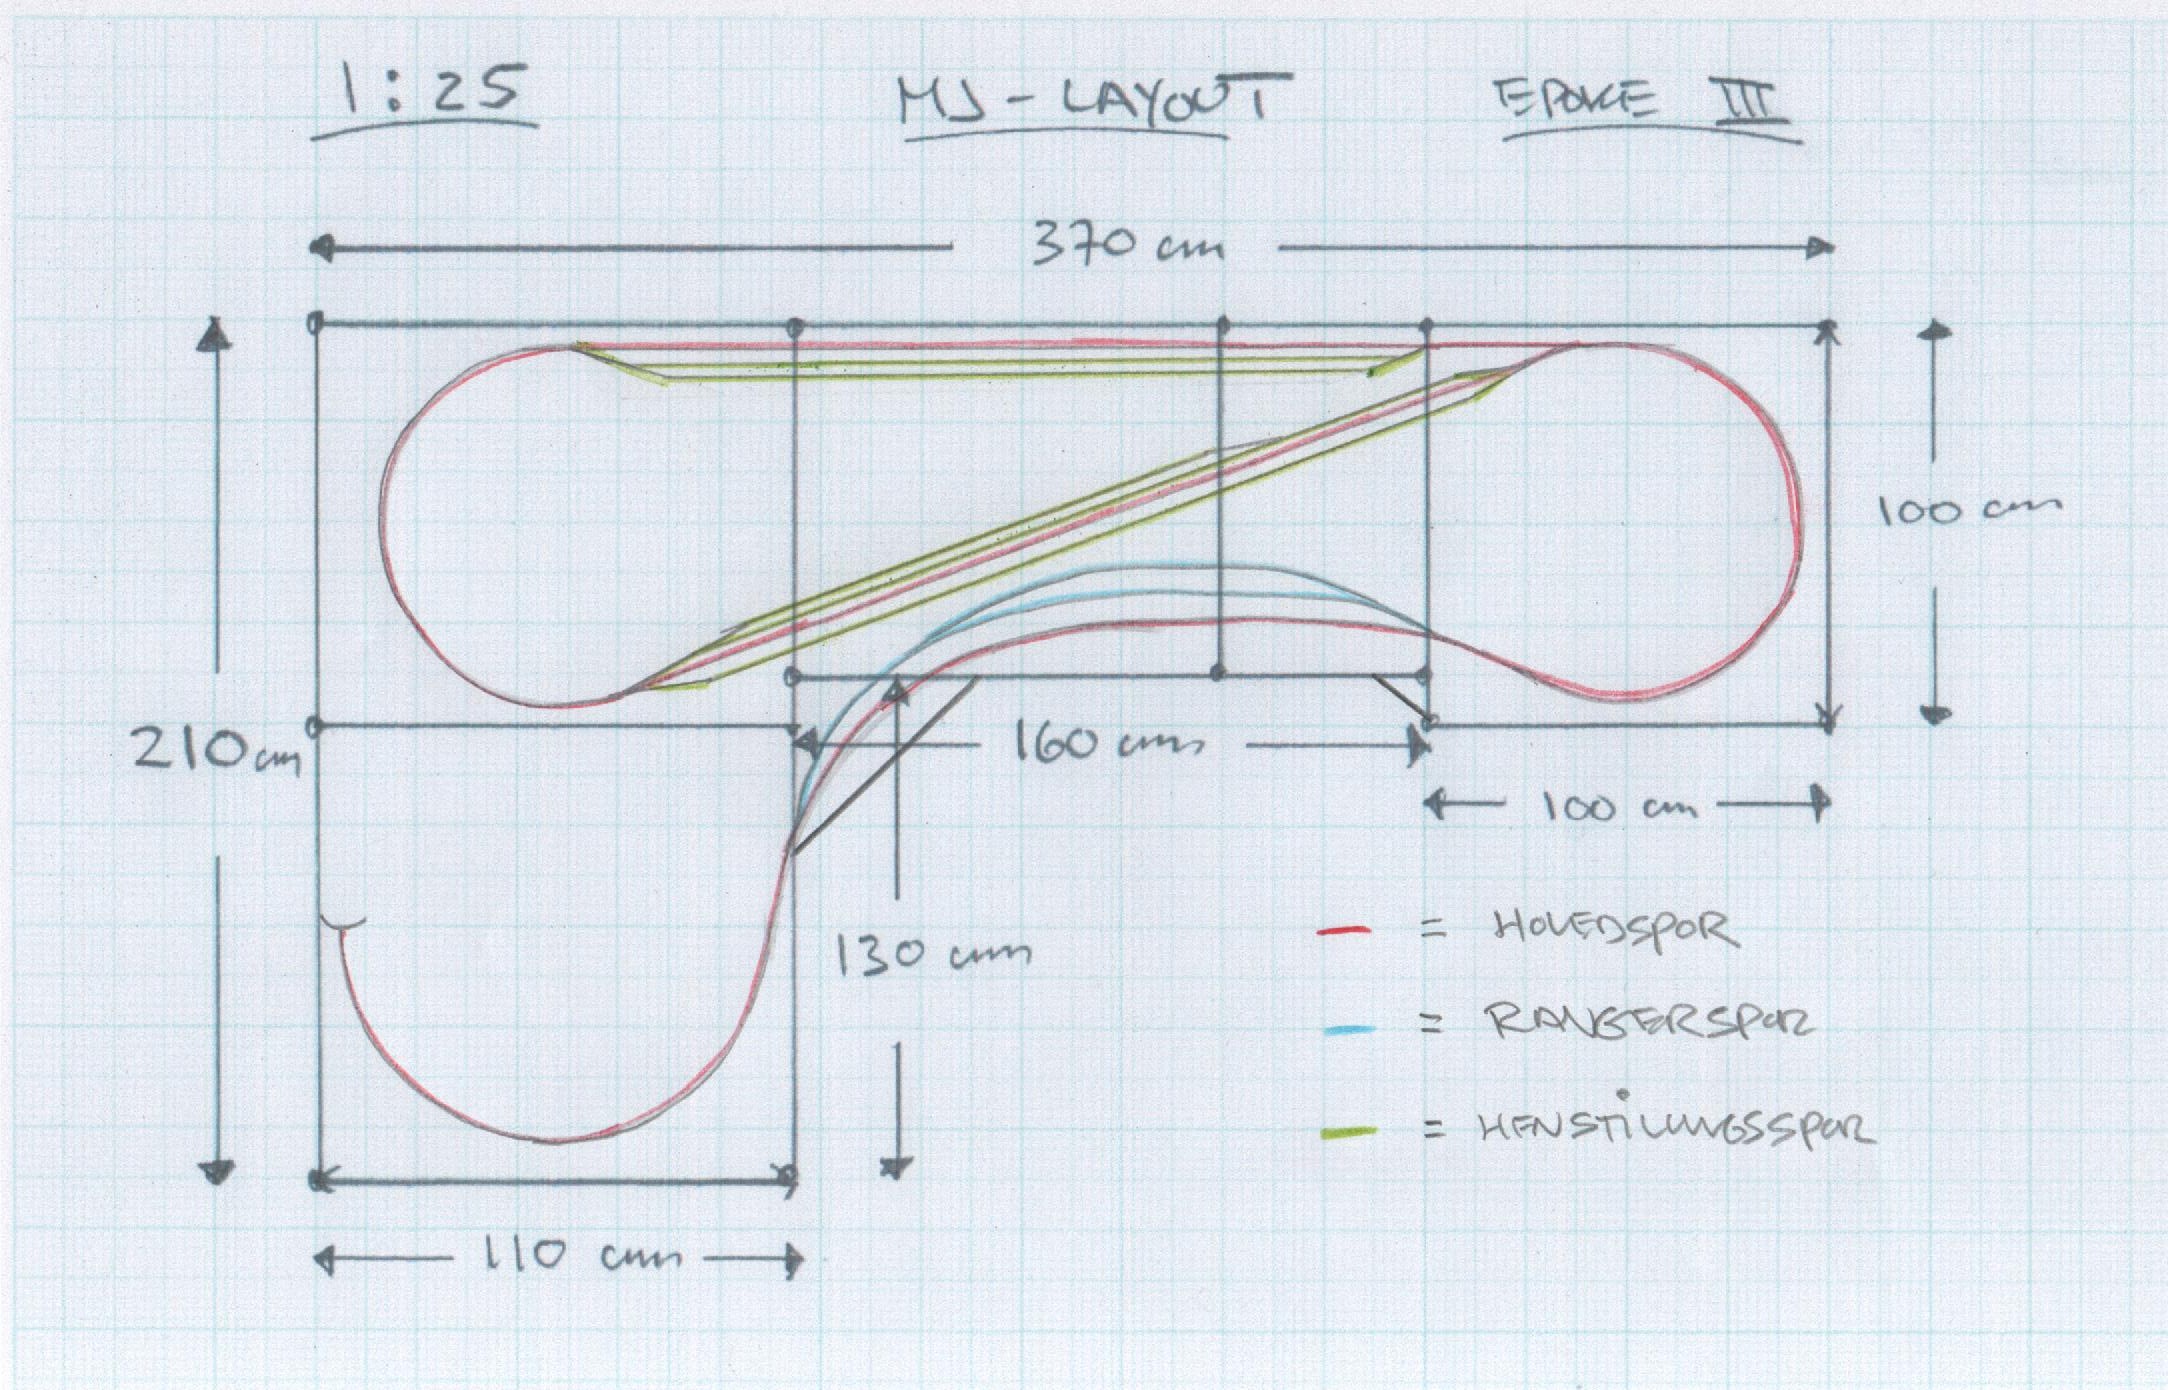 1:25
MJ-LAYOUT
EPOKE III
370 cm
100 cm
210 cm
160 cm
100 cm
130 cm
110 cm
= HOVEDSPOR
= RANGERSPOR
= HENSTILLINGSSPOR